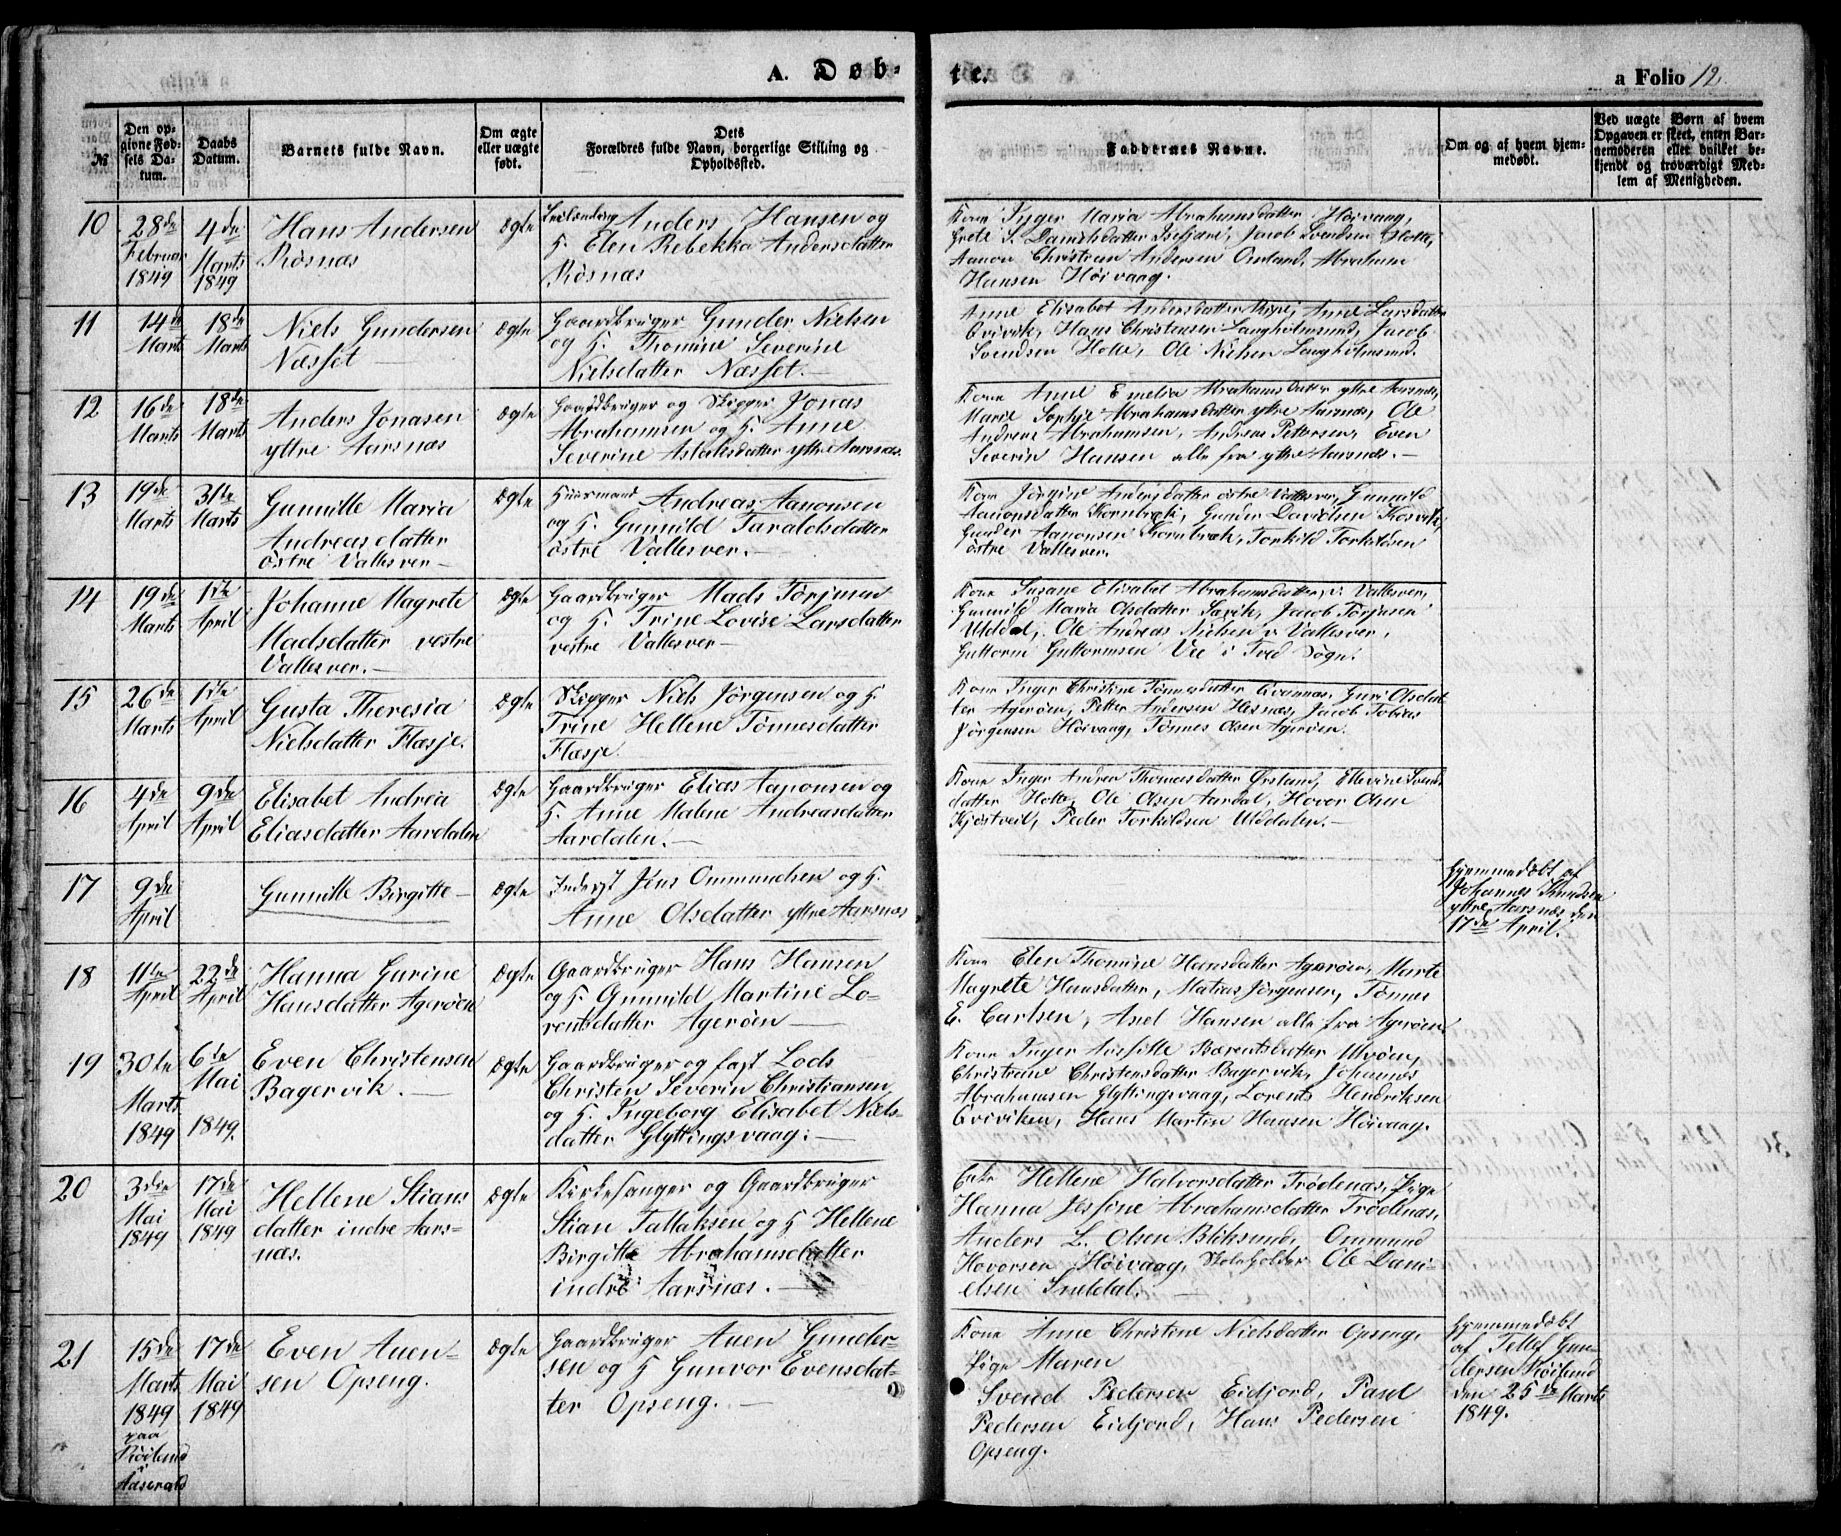 A. Døb-
te.
a Folio 12.
№
Den op-
givne Fød-
sels Da-
tum.
Daabs
Datum.
Barnets fulde Navn.
Om ægte
eller uægte
født.
Dets
Forældres fulde Navn, borgerlige Stilling og
Opholdsted.
Faddernes Navne.
Om og af hvem hjem-
medøbt.
Ved uægte Børn af hvem
Opgaven er skeet, enten Bar-
nemoderen eller hvilket be-
kjendt og troværdigt Med-
lem af Menigheden.
10
28de
Februar
1849
4de
Marts
1849
Hans Andersen
Rösnæs
ægte
Anders Hansen og
H. Elen Rebekka Andersdatter
Rösnæs
Kone Inger Maria Abrahamsdatter Höivaag,
Grete S. Danielsdatter Jacob Svendsen Holte,
Aanon Christian Andersen Omland, Abraham
Hansen Höivaag.
11
14de
Marts
18de
Marts
Niels Gundersen
Næsset
ægte
Gaardbruger Gunder Nielsen
og H. Thomine Severine
Nielsdatter Næsset.—
Anne Elisabet Andersdatter Anne Larsdatter
Qvivik, Hans Christensen Langholmsund, Jacob
Svendsen Holte, Ole Nielsen Langholmsund.
12
16de
Marts
18de
Marts
Anders Jonasen
yttre Aarsnæs
ægte
Gaardbruger og Skipper Jonas
Abrahamsen og H. Anne
Severine Aslaksdatter yttre Aarsnæs.
Kone Anne Emelia Abrahamsdatter yttre Aarsnæs,
Marie Sophie Abrahamsdatter yttre Aarsnæs, Ole
Andreas Abrahamsen, Andreas Pettersen, Even
Severin Hansen alle fra yttre Aarsnæs.—
13
19de
Marts
31te
Marts
Gunnille Maria
Andreasdatter
östre Vallesver—
ægte
Huusmand Andreas Aanonsen
og H. Gunnild Taraldsdatter
östre Vallesver.—
Kone Jörgine Andersdatter östre Vallesver, Gunnild
Aanonsdatter Kornbræk, Gunder Davidsen Kosvik,
Gunder Aanonsen Kornbræk, Torkild Torkildsen
östre Vallesver.
14
19de
Marts
1ste
April
Johanne Magrete
Madsdatter vestre
Vallesver.—
ægte
Gaardbruger Mads Törjusen
og H. Trine Lovise Larsdatter
vestre Vallesver—
Kone Susane Elisabet Abrahamsdatter, v. Vallesver,
Gunnild Maria Olsdatter Sævik, Jacob Törjusen
Uldal, Ole Andreas Nielsen v Vallesver,
Guttorm Guttormsen Vee i Tved Sogn.
15
26de
Marts
1ste
April
Gusta Theresia
Nielsdatter Flasje.
ægte
Skipper Niels Jörgensen og H.
Trine Hellene Tönnesdatter
Flasje.
Kone Inger Christine Tönnesdatter Qvannæs, Guri Olsdat
ter Ageröen, Petter Andersen Hesnæs, Jacob Tobias
Jörgensen Höivaag, Tönnes Olsen Ageröen.
16
4de
April
9de
April
Elisabet Andrea
Eliasdatter Aardalen
ægte
Gaardbruger Elias Aanonsen og
H. Anne Malene Andreasdatter
Aardalen.—
Kone Inger Andrea Thomasdatter Örsland, Ellevine Svends
datter Holte, Ole Olsen Aardal, Hovor Olsen
Kjöstveil, Peder Torkildsen Uddalen.—
17
9de
April
Gunnille Birgitte—
ægte
Inderst Jens Ommundsen og H.
Anne Olsdatter yttre Aarsnæs
Hjemmedöbt af
Johannes Knudsen
yttre Aarsnæs den
17de April.
18
11te
April
22de
April
Hanna Gurine
Hansdatter Ageröen
ægte
Gaardbruger Hans Hansen
og H. Gunnild Martine Lo-
rentsdatter Ageröen—
Kone Elen Thomine Hansdatter Ageröen, Marte
Magrete Hansdatter, Matias Jörgensen, Tönnes
E. Carlsen, Axel Hansen alle fra Ageröen.
19
30te
Marts
1849
6te
Mai
1849.
Even Christensen
Bagervik.—
ægte
Gaardbruger og fast Lods
Christen Severin Christiansen
og H. Ingeborg Elisabet Niels-
datter Glyttingsvaag.—
Kone Inger Bærentsdatter Ulvöen,
Christiane Christensdatter Bagervik, Johannes
Abrahamsen Glyttingsvaag, Lorents Hendriksen
Qviviken, Hans Martin Hansen Höivaag.
20
3die
Mai
1849
17de
Mai
1849
Hellene Stians
datter indre Aars-
næs.
ægte
Kirkesanger og Gaardbruger
Stian Tallaksen og H Hellene
Birgitte Abrahamsdatter
indre Aarsnæs.—
Enke Hellene Halvorsdatter Trödenæs, Pige
Hanna Jessine Abrahamsdatter Trödenæs,
Anders L. Olsen Bliksund, Ommund
Hovorsen Höivaag, Skoleholder Ole Dani-
elsen Snildal.—
21
15de
Marts
1849
paa
Röilund
Aaserald
17de
Mai
1849
Even Auen-
sen Opseng.
ægte
Gaardbruger Auen Gunder-
sen og H Gunvor Evensdat-
ter Opseng.—
Kone Anne Christine Nielsdatter Opseng,
Pige Maren
Svend Pedersen Eidjord, Paul
Pedersen Eidjord, Hans Pedersen
Opseng.
Hjemmedöbt
af Tellef Gun-
dersen Röilund
den 25de Marts
1849.